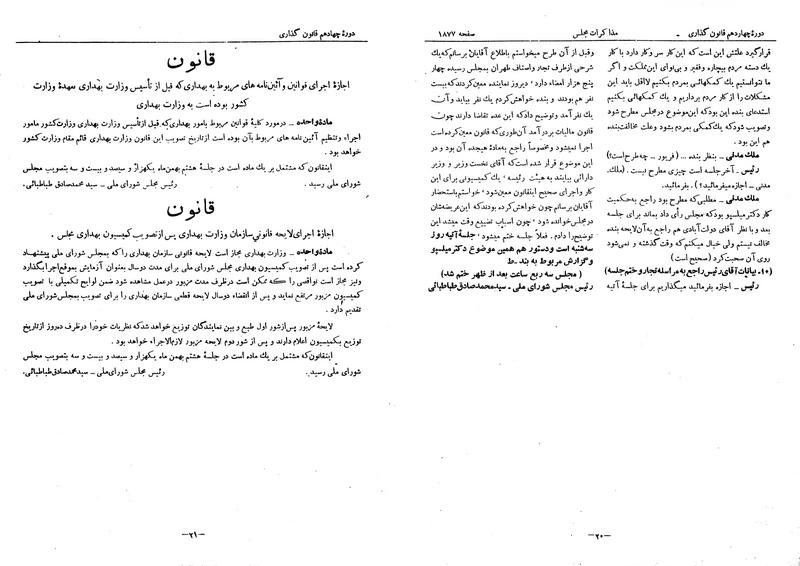 دورهٔ چهاردهم قانون گذاری
مذاکرات مجلس
صفحه ۱۸۷۷
قرار گیرد علتش این است که این کار سر و کار دارد با کار
یک دسته مردم بیچاره و فقیر و بی‌نوای این مملکت و اگر
ما نتوانستیم یک کمکهائی بمردم بکنیم لااقل باید این
مشکلات را از کار مردم برداریم و یک کمکهائی بکنیم
استدعای بنده این بود که این موضوع در مجلس مطرح شود
و تصویب شود که یک کمکی بمردم بشود و علت مخالفت بنده
هم این بود.
ملک مدنی ـ بنظر بنده ... (فریور ـ چه طرح است؟)
رئیس ـ آخر جلسه است چیزی مطرح نیست. (ملک
مدنی ـ اجازه میفرمائید؟). بفرمائید.
ملک مدنی ـ مطلبی که مطرح بود راجع به حکمیت
کار دکتر میلسپو بود که مجلس رأی داد بماند برای جلسه
بعد و با نظر آقای دولت‌آبادی هم راجع به آن لایحه بنده
مخالف نیستم ولی خیال میکنم که وقت گذشته و نمی‌شود
روی آن صحبت کرد (صحیح است)
(۱۰ـ بیانات آقای رئیس راجع به مراسله تجار و ختم جلسه)
رئیس ـ اجازه بفرمائید میگذاریم برای جلسه آتیه
و قبل از آن طرح میخواستم باطلاع آقایان برسانم که یک
شرحی از طرف تجار و اصناف طهران بمجلس رسیده چهار
پنج هزار امضاء دارد، دیروز نماینده معین کردند که بیست
نفر هم بودند و بنده خواهش کردم یک نفر بیاید و آن
یک نفر آمد و توضیح داد که این عده تقاضا دارند چون
قانون مالیات بر درآمد آن‌طوری که قانون معین کرده است
اجرا نمیشود و مخصوصاً راجع به مادهٔ هیجده آن بود و در
این موضوع قرار شده است که آقای نخست وزیر و وزیر
دارائی بیایند به هیئت رئیسه، یک کمیسیونی برای این
کار و اجرای صحیح این قانون معین شود، خواستم باستحضار
آقایان برسانم چون خواهش کرده بودند که این عریضه‌شان
در مجلس خوانده شود، چون اسباب تضییع وقت میشد این
توضیح را دادم. فعلا جلسه ختم میشود، جلسه آتیه روز
سه‌شنبه است و دستور هم همین موضوع دکتر میلسپو
و گزارش مربوط به بند ـ ط
(مجلس سه ربع ساعت بعد از ظهر ختم شد)
رئیس مجلس شورای ملی ـ سید محمد صادق طباطبائی
ـ۲۰ـ
دورهٔ چهاردهم قانون گذاری
قانون
اجازهٔ اجرای قوانین و آئین‌نامه های مربوط به بهداری که قبل از تأسیس وزارت بهداری بعهدهٔ وزارت
کشور بوده است به وزارت بهداری
مادهٔ واحده ـ در مورد کلیهٔ قوانین مربوط بامور بهداری که قبل از تأسیس وزارت بهداری وزارت کشور مامور
اجراء و تنظیم آئین‌نامه های مربوط بآن بوده است از تاریخ تصویب این قانون وزارت بهداری قائم مقام وزارت کشور
خواهد بود.
این قانون که مشتمل بر یک ماده است در جلسهٔ هشتم بهمن ماه یکهزار و سیصد و بیست و سه بتصویب مجلس
شورای ملی رسید. رئیس مجلس شورای ملی ـ سید محمد صادق طباطبائی.
قانون
اجازهٔ اجرای لایحه قانونی سازمان وزارت بهداری پس از تصویب کمیسیون بهداری مجلس.
مادهٔ واحده ـ وزارت بهداری مجاز است لایحه قانونی سازمان بهداری را که به مجلس شورای ملی پیشنهاد
کرده است پس از تصویب کمیسیون بهداری مجلس شورای ملی برای مدت دو سال بعنوان آزمایش بموقع اجرا بگذارد
و نیز مجاز است نواقصی را که ممکن است در ظرف مدت مزبور در عمل مشاهده شود ضمن لوایح تکمیلی با تصویب
کمیسیون مزبور مرتفع نماید و پس از انقضاء دو سال لایحه قطعی سازمان بهداری را برای تصویب بمجلس شورای ملی
تقدیم دارد.
لایحهٔ مزبور پس از شور اول طبع و بین نمایندگان توزیع خواهد شد که نظریات خود را در ظرف ده روز از تاریخ
توزیع بکمیسیون اعلام دارند و پس از شور دوم لایحه مزبور لازم‌الاجراء خواهد بود.
این قانون که مشتمل بر یک ماده است در جلسهٔ هشتم بهمن ماه یکهزار و سیصد و بیست و سه بتصویب مجلس
شورای ملی رسید. رئیس مجلس شورای ملی ـ سید محمد صادق طباطبائی.
ـ۲۱ـ